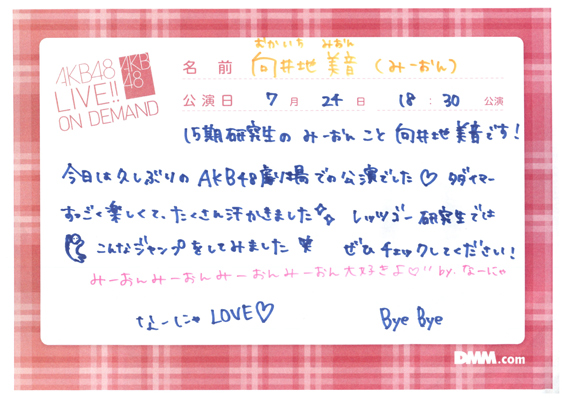 AKB48
LIVE!!
ON DEMAND
AKB
48
おかいち みおん
名 前 向井地 美音 (みーおん)
公演日 7月 24日 18:30 公演
15期研究生の みーおん こと 向井地 美音です!
今日は久しぶりの AKB48劇場での公演でした♡ タダイマー
すっごく楽しくて、たくさん汗かきました レッツゴー研究生では
こんなジャンプをしてみました ぜひ チェックしてください!
みーおんみーおんみーおんみーおん大好きよ♡!! by. なーにゃ
なーにゃ LOVE♡ Bye Bye
DMM.com